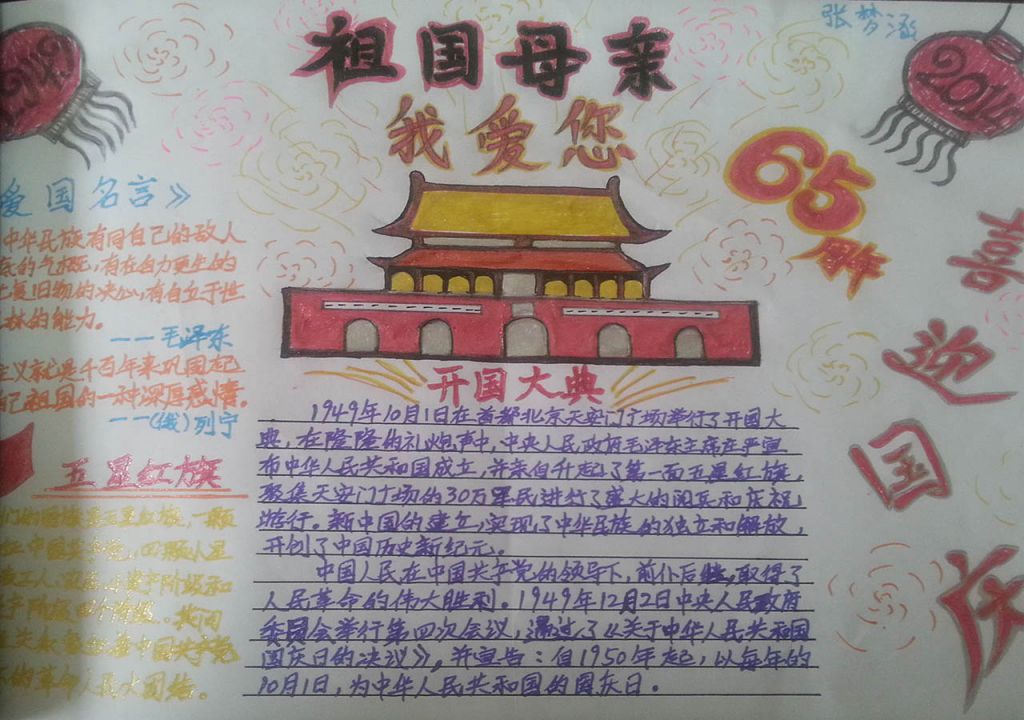 张梦涵
2014
2014
祖国母亲
我爱您
65
周年
喜迎国庆
爱国名言》
中华民族有同自己的敌人
的气概,有在自力更生的
复旧物的决心,有自立于世
林的能力。
——毛泽东
主义就是千百年来巩固起
己祖国的一种深厚感情。
——(俄)列宁
五星红旗
开国大典
1949年10月1日在首都北京天安门广场举行了开国大
典,在隆隆的礼炮声中,中央人民政府毛泽东主席在严宣
布中华人民共和国成立,并亲自升起了第一面五星红旗,
聚集天安门广场的30万军民进行了盛大的阅兵和庆祝
游行。新中国的建立,实现了中华民族的独立和解放,
开创了中国历史新纪元。
中国人民在中国共产党的领导下,前仆后继,取得了
人民革命的伟大胜利。1949年12月2日中央人民政府
委员会举行第四次会议,通过了《关于中华人民共和国
国庆日的决议》,并宣告:自1950年起,以每年的
10月1日,为中华人民共和国的国庆日。
五星红旗,一颗
中国共产党,四颗小星
工人
阶级和
中国共产党
的革命人民大团结。